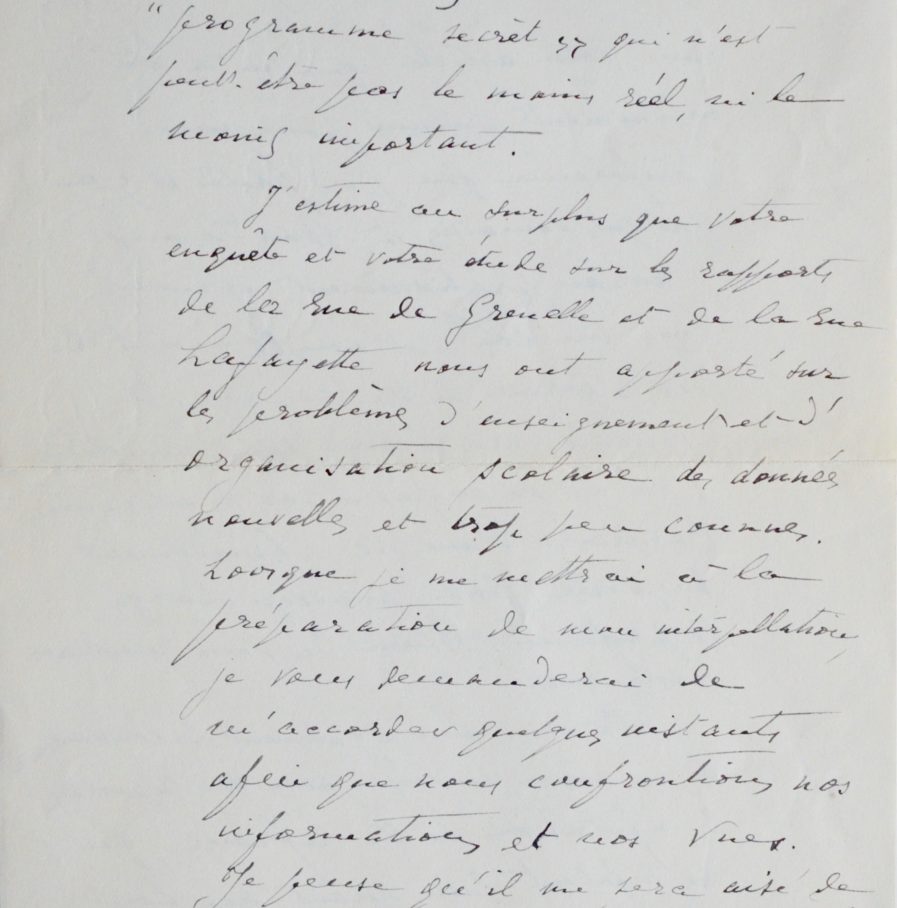 "programme secret" qui n'est
peut-être pas le moins réel, ni le
moins important.
J'estime au surplus que votre
enquête et votre étude sur les rapports
de la rue de Grenelle et de la rue
Lafayette nous ont apporté sur
les problèmes d'enseignement et d'
organisation scolaire des données
nouvelles et trop peu connues.
Lorsque je me mettrai à la
préparation de mon interpellation,
je vous demanderai de
m'accorder quelques instants
afin que nous confrontions nos
informations et nos vues.
Je pense qu'il me sera aisé de